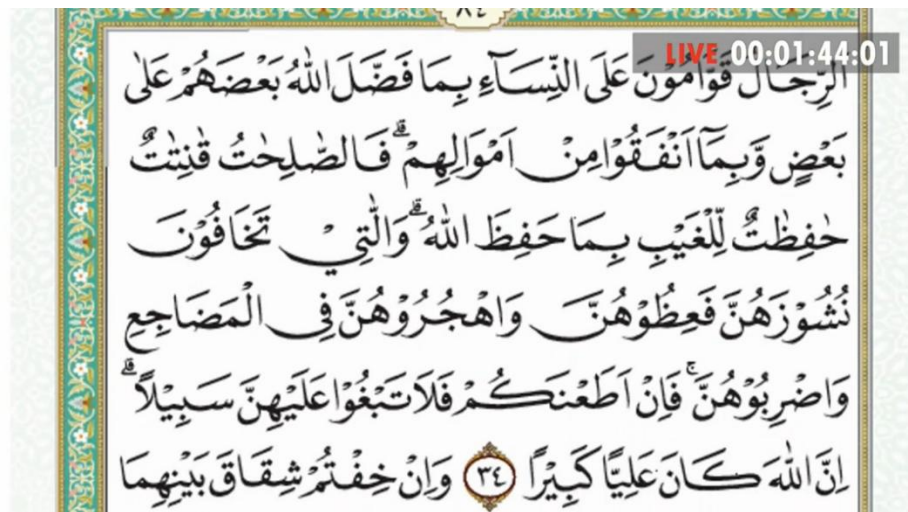 ٨٤
LIVE 00:01:44:01
اَلرِّجَالُ قَوَّامُوْنَ عَلَى النِّسَاۤءِ بِمَا فَضَّلَ اللّٰهُ بَعْضَهُمْ عَلٰى
بَعْضٍ وَّبِمَآ اَنْفَقُوْا مِنْ اَمْوَالِهِمْ ۗ فَالصّٰلِحٰتُ قٰنِتٰتٌ
حٰفِظٰتٌ لِّلْغَيْبِ بِمَا حَفِظَ اللّٰهُ ۗوَالّٰتِيْ تَخَافُوْنَ
نُشُوْزَهُنَّ فَعِظُوْهُنَّ وَاهْجُرُوْهُنَّ فِى الْمَضَاجِعِ
وَاضْرِبُوْهُنَّ ۚ فَاِنْ اَطَعْنَكُمْ فَلَا تَبْغُوْا عَلَيْهِنَّ سَبِيْلًا ۗ
اِنَّ اللّٰهَ كَانَ عَلِيًّا كَبِيْرًا ٣٤ وَاِنْ خِفْتُمْ شِقَاقَ بَيْنِهِمَا